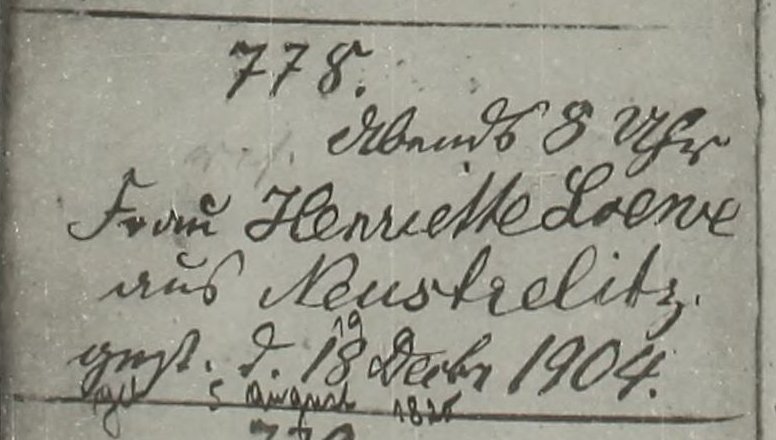 778.
Abends 8 Uhr
Frau Henriette Loewe
aus Neustrelitz.
gest. d. 18 Decbr 1904.
19
geb 5 August 1826
779